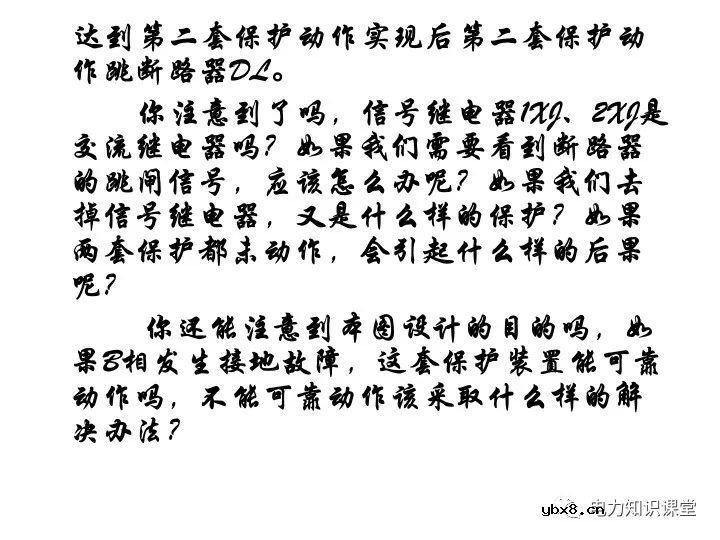 达到第二套保护动作实现后第二套保护动
作跳断路器DL。
你注意到了吗，信号继电器1XJ、2XJ是
交流继电器吗？如果我们需要看到断路器
的跳闸信号，应该怎么办呢？如果我们去
掉信号继电器，又是什么样的保护？如果
两套保护都未动作，会引起什么样的后果
呢？
你还能注意到本图设计的目的吗，如
果B相发生接地故障，这套保护装置能可靠
动作吗，不能可靠动作该采取什么样的解
决办法？
电力知识课堂
ybx8.cn